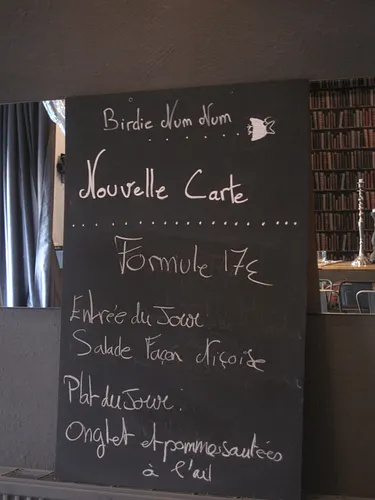 Birdie Num Num
Nouvelle Carte
Formule 17€
Entrée du Jour:
Salade Façon Niçoise
Plat du Jour:
Onglet et pommes sautées
à l'ail